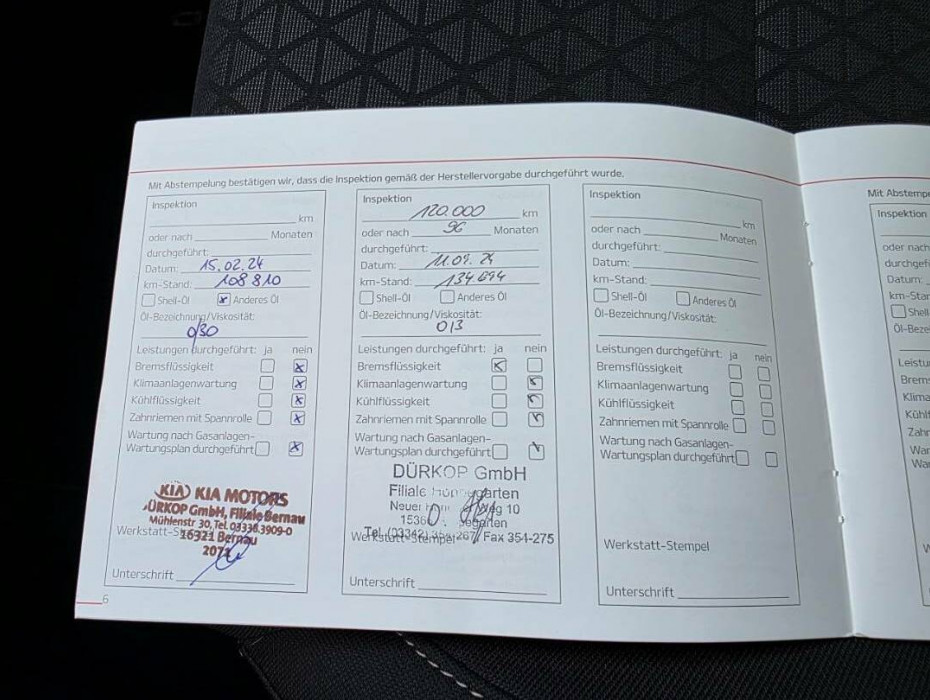 Mit Abstempelung bestätigen wir, dass die Inspektion gemäß der Herstellervorgabe durchgeführt wurde.
Inspektion
km
oder nach Monaten
durchgeführt:
Datum: 15.02.24
km-Stand: 108 810
Shell-Öl Anderes Öl
Öl-Bezeichnung/Viskosität:
0/30
Leistungen durchgeführt: ja nein
Bremsflüssigkeit
Klimaanlagenwartung
Kühlflüssigkeit
Zahnriemen mit Spannrolle
Wartung nach Gasanlagen-
Wartungsplan durchgeführt
KIA KIA MOTORS
DÜRKOP GmbH, Filiale Bernau
Mühlenstr 30, Tel. 03338 3909-0
Werkstatt-Stempel
16321 Bernau
Unterschrift
6
Inspektion
120.000 km
oder nach 96 Monaten
durchgeführt:
Datum: 11.09.24
km-Stand:
Shell-Öl Anderes Öl
Öl-Bezeichnung/Viskosität:
Leistungen durchgeführt: ja nein
Bremsflüssigkeit
Klimaanlagenwartung
Kühlflüssigkeit
Zahnriemen mit Spannrolle
Wartung nach Gasanlagen-
Wartungsplan durchgeführt
DÜRKOP GmbH
Filiale
Neuer 10
Werkstatt-Stempel
Tel. Fax 354-275
Unterschrift
Inspektion
km
oder nach Monaten
durchgeführt:
Datum:
km-Stand:
Shell-Öl Anderes Öl
Öl-Bezeichnung/Viskosität:
Leistungen durchgeführt: ja nein
Bremsflüssigkeit
Klimaanlagenwartung
Kühlflüssigkeit
Zahnriemen mit Spannrolle
Wartung nach Gasanlagen-
Wartungsplan durchgeführt
Werkstatt-Stempel
Unterschrift
Mit Abstempe
Inspektion
oder nach
durchgef
Datum:
km-Star
Shell
Öl-Beze
Leistu
Brems
Klima
Kühlf
Zahr
War
Wa